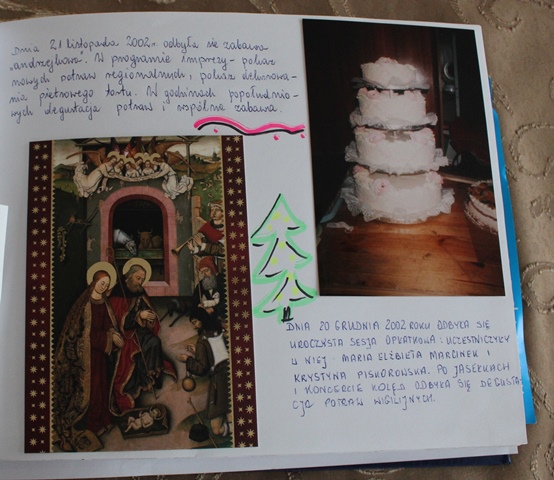 Dnia 21 listopada 2002r. odbyła się zabawa
„andrzejkowa". W programie imprezy - pokaz
nowych potraw regionalnych, pokaz dekorowa-
nia piętrowego tortu. W godzinach popołudnio-
wych degustacja potraw i wspólna zabawa.
DNIA 20 GRUDNIA 2002 ROKU ODBYŁA SIĘ
UROCZYSTA SESJA OPŁATKOWA: UCZESTNICZYŁY
W NIEJ - MARIA ELŻBIETA MARCINEK I
KRYSTYNA PISKOROWSKA. PO JASEŁKACH
I KONCERCIE KOLĘD ODBYŁA SIĘ DEGUSTA
CJA POTRAW WIGILIJNYCH.